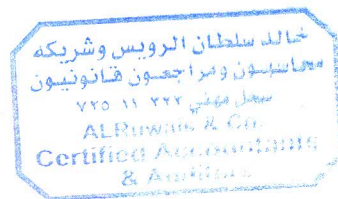 خالد سلطان الرويس وشريكه
محاسبون ومراجعون قانونيون
سجل مهني ٣٢٢ ١١ ٧٢٥
ALRuwais & Co.
Certified Accountants
& Auditors